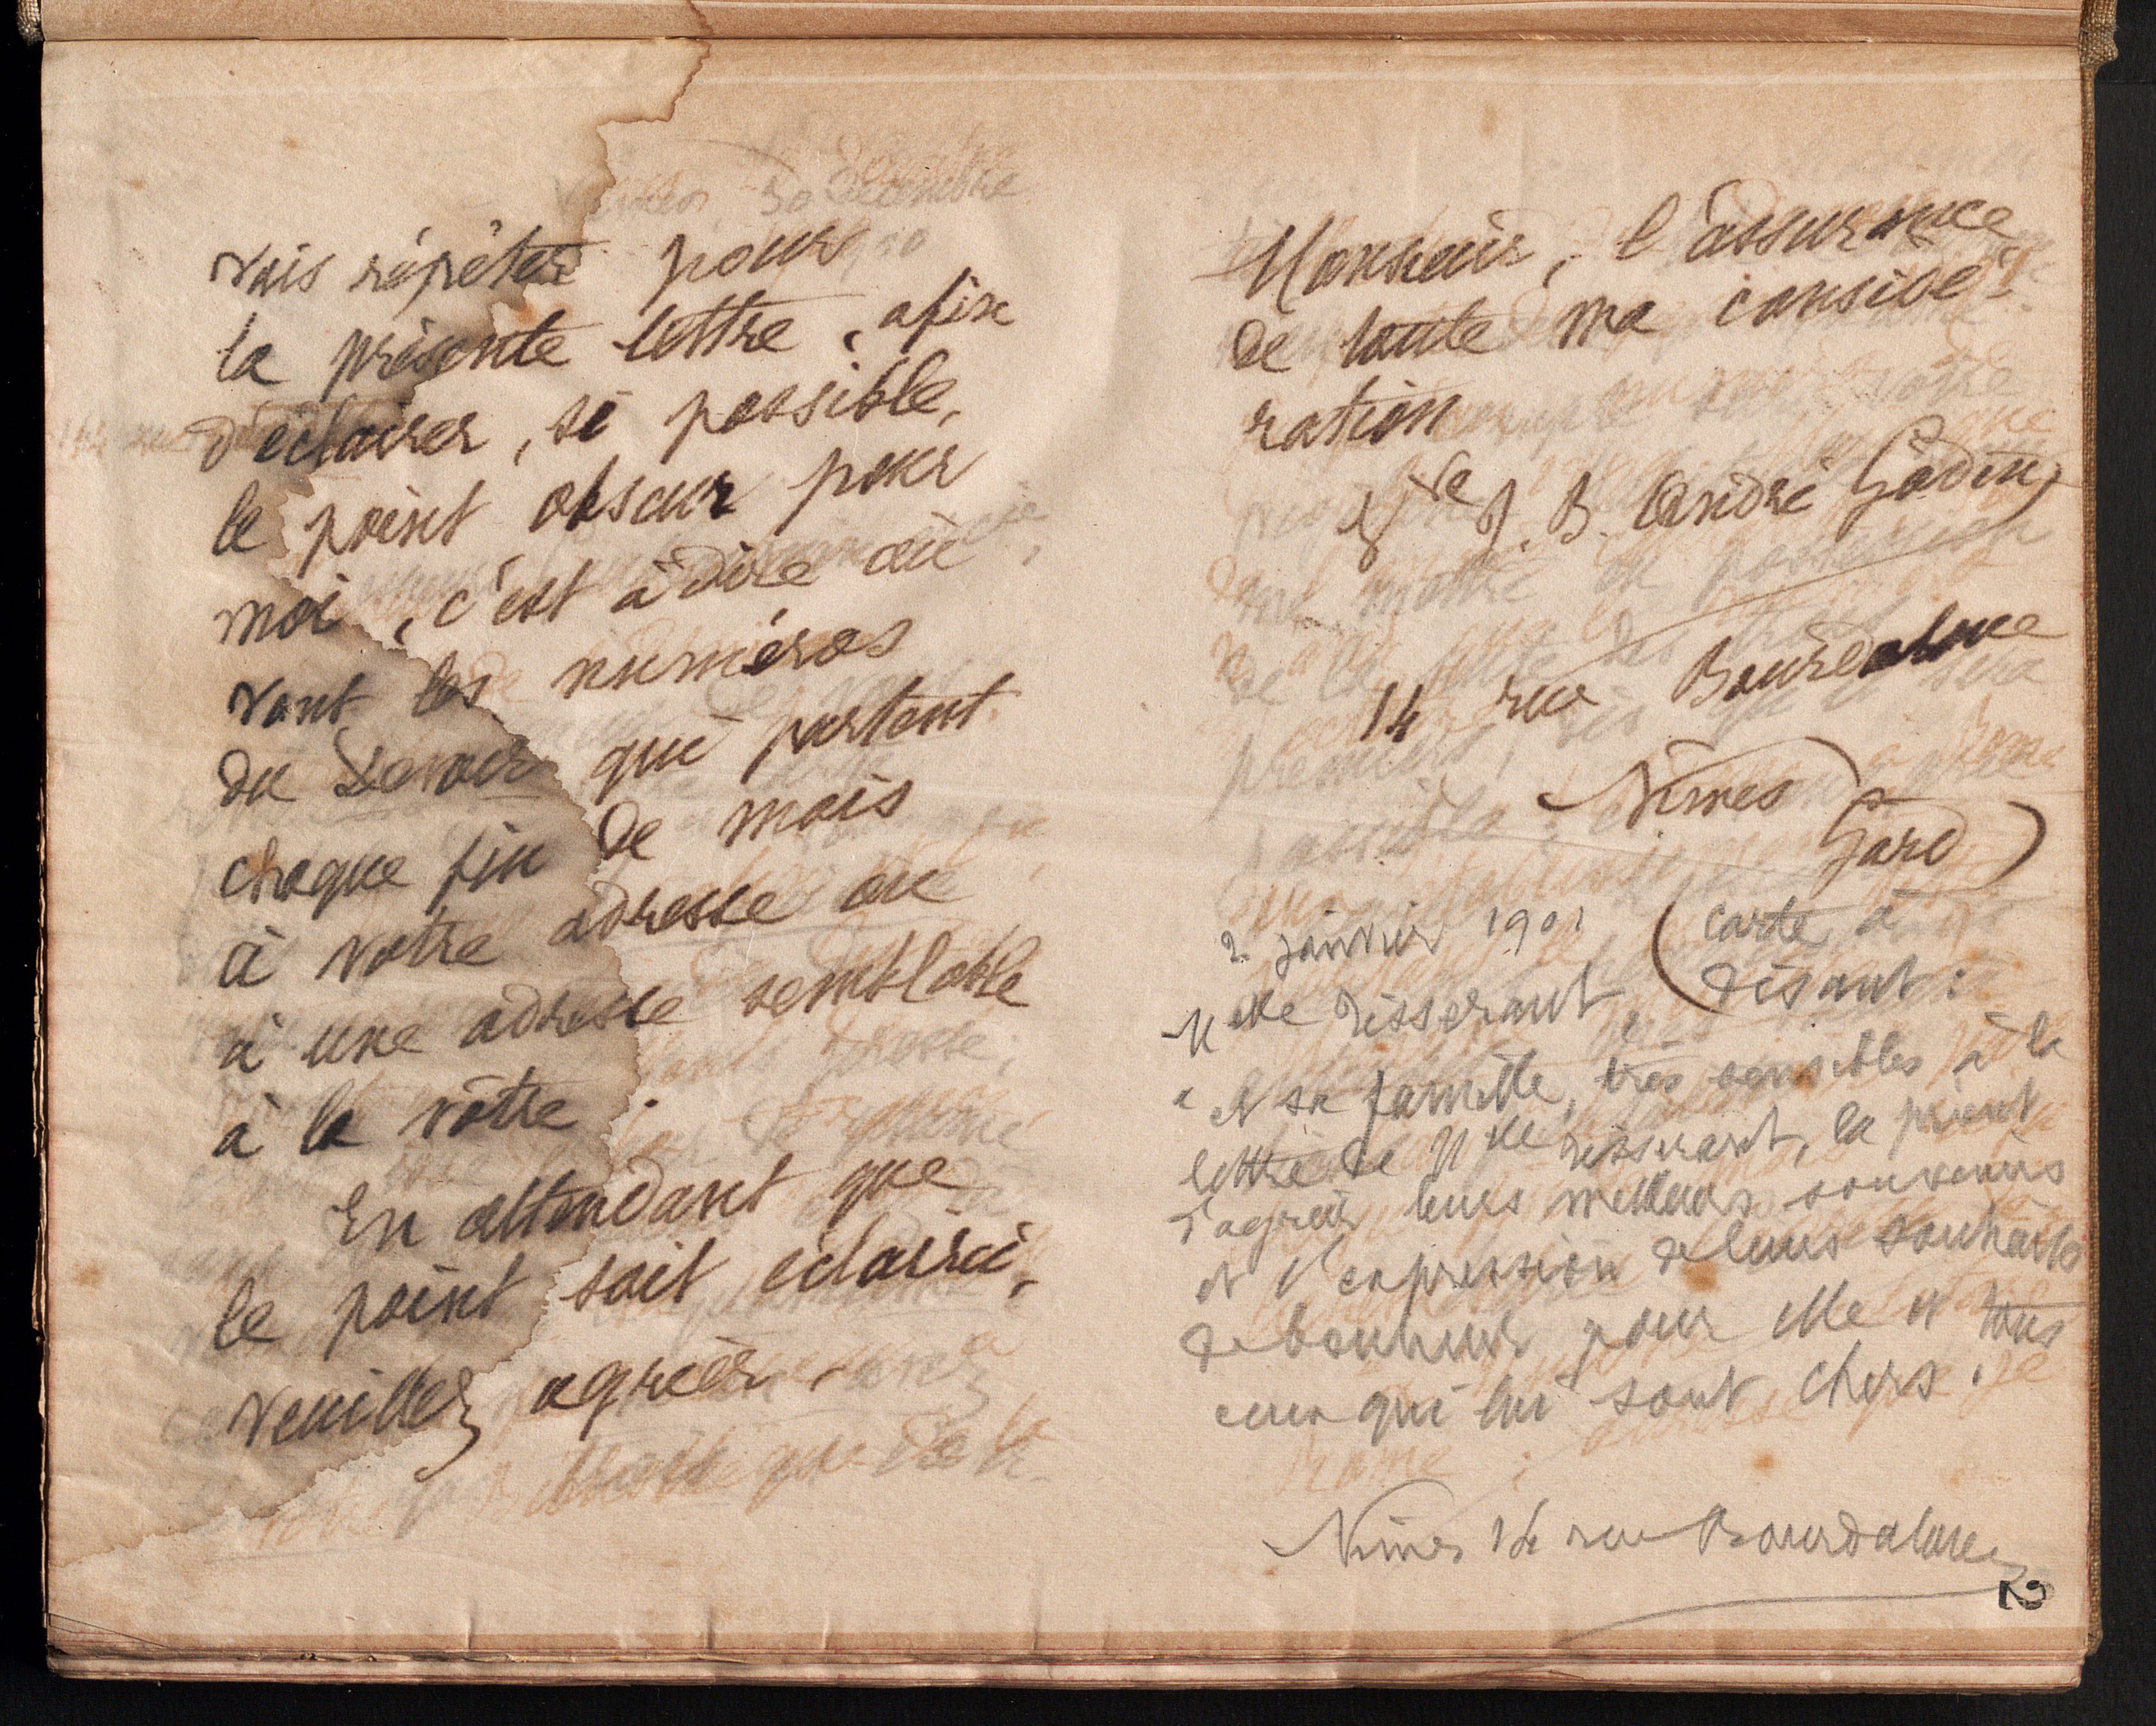 vais répéter pour
la présente lettre, afin
d'éclairer, si possible,
le point obscur pour
moi, c'est à dire où
vont les numéros
du Devoir qui partent
chaque fin de mois
à votre adresse ou
à une adresse semblable
à la vôtre.
En attendant que
le point soit éclairci,
veuillez agréer,
Monsieur, l'assurance
de toute ma considé-
ration
Vve J. B. André Godin
14 rue Bourdaloue
Nîmes
Gard)
2 janvier 1901 (carte à
Melle Tisserant disant:
et sa famille, très sensibles à la
lettre de Melle Tisserant, la prient
d'agréer leurs meilleurs souvenirs
et l'expression de leurs souhaits
de bonheur pour elle et tous
ceux qui lui sont chers.
Nîmes 14 rue Bourdaloue
2